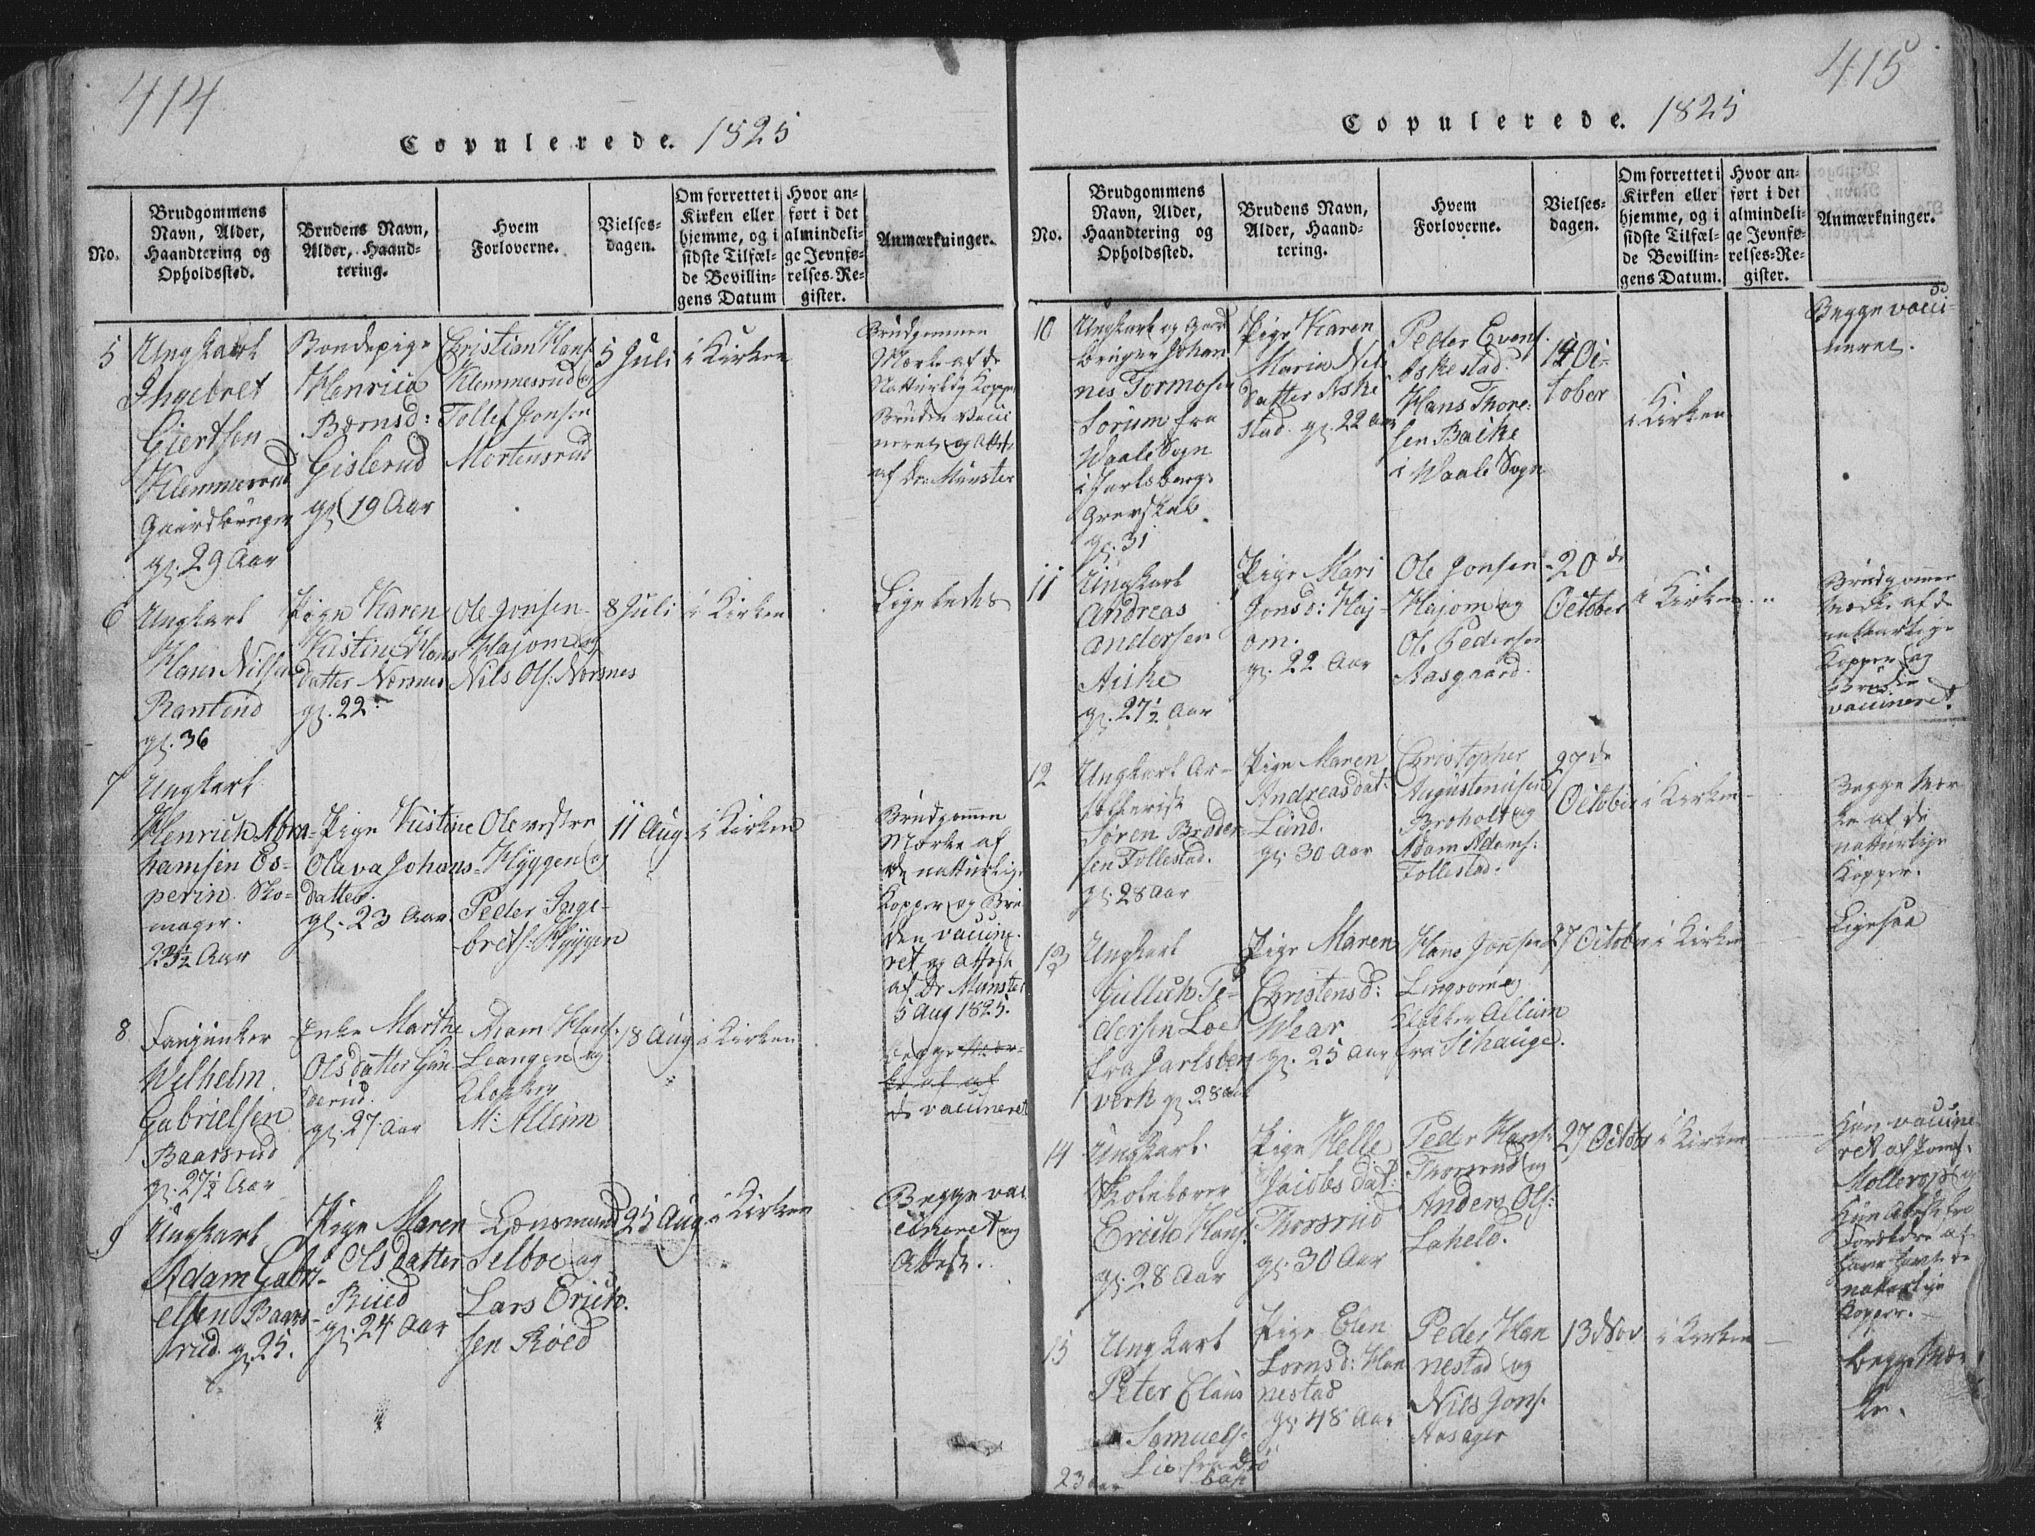 414
Copulerede. 1825
No.
Brudgommens
Navn, Alder,
Haandtering og
Opholdssted.
Brudens Navn,
Alder, Haand-
tering.
Hvem
Forloverne.
Vielses-
dagen.
Om forrettet i
Kirken eller
hjemme, og i
sidste Tilfæl-
de Bevillin-
gens Datum
Hvor an-
ført i det
almindeli-
ge Jevnfø-
relses-Re-
gister.
Anmærkninger.
5
Ungkarl
Ingebret
Giertsen
Klemmesrud
Gaardbruger
gl. 29 Aar
Bondepige
Henrica
Bærnsd:
Gislerud
gl. 19 Aar
Christian Hans.
Klemmesrud og
Tollef Jonsen
Mortensrud
5 Juli
i Kirken
Brudgommen
Mærke af de
Natturlig Kopper
Bruden vacci
neret og Attest
af Dr: Munster
6
Ungkarl
Hans Nilsen
Rantind
gl. 36
Pige Karen
Kistine Hans
datter Næsnes
gl. 22
Ole Jonsen
Hajom og
Nils Ols: Næsnes
8 Juli
i Kirken
Ligeledes
7
Ungkarl
Henrich Abra-
hamsen Es-
perin. Sko-
mager.
23½ Aar
Pige Kistine
Olava Johans-
datter.
gl. 23 Aar
Ole vestre
Hyggen og
Peder Inge-
brets. Hyggen
11 Aug
i Kirken
Brudgommen
Mærke af
de natturlige
Kopper og Bru
den vaccine-
ret og Attest
af Dr Munster
5 Aug 1825.
8
Fanejunker
Wilhelm
Gabrielsen
Baarsrud
gl. 27½ Aar
Enke Marthe
Olsdatter Gun
derud.
gl. 27 Aar
Adam Hans.
Leangen og
Klokker
M: Allum
18 Aug
i Kirken
begge Mær-
ke af af
de vaccineret
9
Ungkarl
Adam Gabri-
elsen Baars-
rud. gl. 25.
Pige Maren
Olsdatter
Rued
gl. 24 Aar
Lænsmand
Selboe og
Lars Erick-
sen Röed
25 Aug
i Kirken
Begge vac
cineret og
Attest.
415
Copulerede. 1825
No.
Brudgommens
Navn, Alder,
Haandtering og
Opholdssted.
Brudens Navn,
Alder, Haand-
tering.
Hvem
Forloverne.
Vielses-
dagen.
Om forrettet i
Kirken eller
hjemme, og i
sidste Tilfæl-
de Bevillin-
gens Datum.
Hvor an-
ført i det
almindeli-
ge Jevnfø-
relses-Re-
gister.
Anmærkninger.
10
Ungkarl og Gaard
bruger Johan
nes Tormosen
Sorum fra
Waale Sogn
i Jarlsbergs
Grevskab
gl. 31
Pige Karen
Maria Nils
datter Aske
stad. gl. 22 Aar
Peder Evens.
Askestad.
Hans Thore-
sen Backe
i Waale Sogn
Oc-
tober
i Kirken
Begge vacci-
neret.
11
Ungkarl
Andreas
Andersen
Aiske
gl. 27½ Aar
Pige Mari
Jonsd: Haj-
om.
gl. 22 Aar
Ole Jonsen
Hajom og
Ole Pedersen
Aasgaard.
20de
October
i Kirken
Brudgommen
Mærke af de
natturlige
Kopper og
Bruden
vaccineret.
12
Ungkarl Ar-
Søren Breder-
sen Follestad.
gl. 28 Aar
Pige Maren
Andreasdat:
Lund.
gl. 30 Aar
Christopher
Augustinusen
Broholt og
Adam Adams:
Follestad.
27de
October
i Kirken
Begge Mær
ke af de
natturlige
Kopper.
13
Ungkarl
Gulluk Pe-
dersen Loe
fra Jarlsberg
verk gl 28 Aar
Pige Maren
Christensd:
Wear
gl. 25 Aar
Hans Jonsen
Lingsom og
Klokker Allum
fra Schauge.
27 October
i Kirken
Ligesaa
14
Ungkarl
Skolelærer
Erick Hans.
gl. 28 Aar
Pige Helle
Jacobs dat:
Thorsrud
gl. 30 Aar
Peder Hans:
Thorsrud og
Anders Ols:
Laheld.
27 Octob
i Kirken
Han vaccine-
ret af Jomf.
Mollerop og
Hun Attest fra
Foreldre at
have havt de
naturlige
Kopper.
15
Ungkarl
Peter Claus
Samuels.
Lie fra Drø
bak
23 Aar
Pige Elen
Lornsd: Han
nestad
gl. 48 Aar
Peder Han
nestad og
Nils Jons.
Aasager
13 Nov
i Kirken
begge Mær
ke.